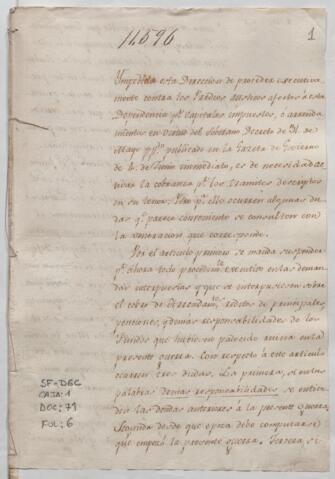 11596
1
Impedida esta Direccion de proceder executiva
mente contra los Prédios rusticos afectos à esta
Dependencia pr. capitales impuestos, ò arrenda
mientos en virtud del Supremo Decreto de 31. de
Mayo ppo. publicado en la Gazeta de Gobierno
de 2. de Junio inmediato, es de necesidad ac
tivar la cobranza pr. los tramites descriptos
en su tenor: Pero pa. ello ocurren algunas du
das qe. parece conveniente se consulten con
la veneracion que corresponde.
Por el articulo primero se manda suspender
pr. ahora todo procedimto. executivo en las deman
das interpuestas y que se interpusieren sobre
el cobro de arrendamtos. reditos de principales,
pensiones, y demas responsabilidades de los
Fundos que hubiesen padecido ruina en la
presente guerra. Con respecto à este articulo
ocurren tres dudas. La primera, si en las
palabras demas responsabilidades se entien
den las deudas anteriores à la presente Guerra.
Segunda desde que epoca debe computarse
que empezó la presente guerra. Tercera, si
SF-DGC
CAJA: 1
DOC: 71
FOL: 6